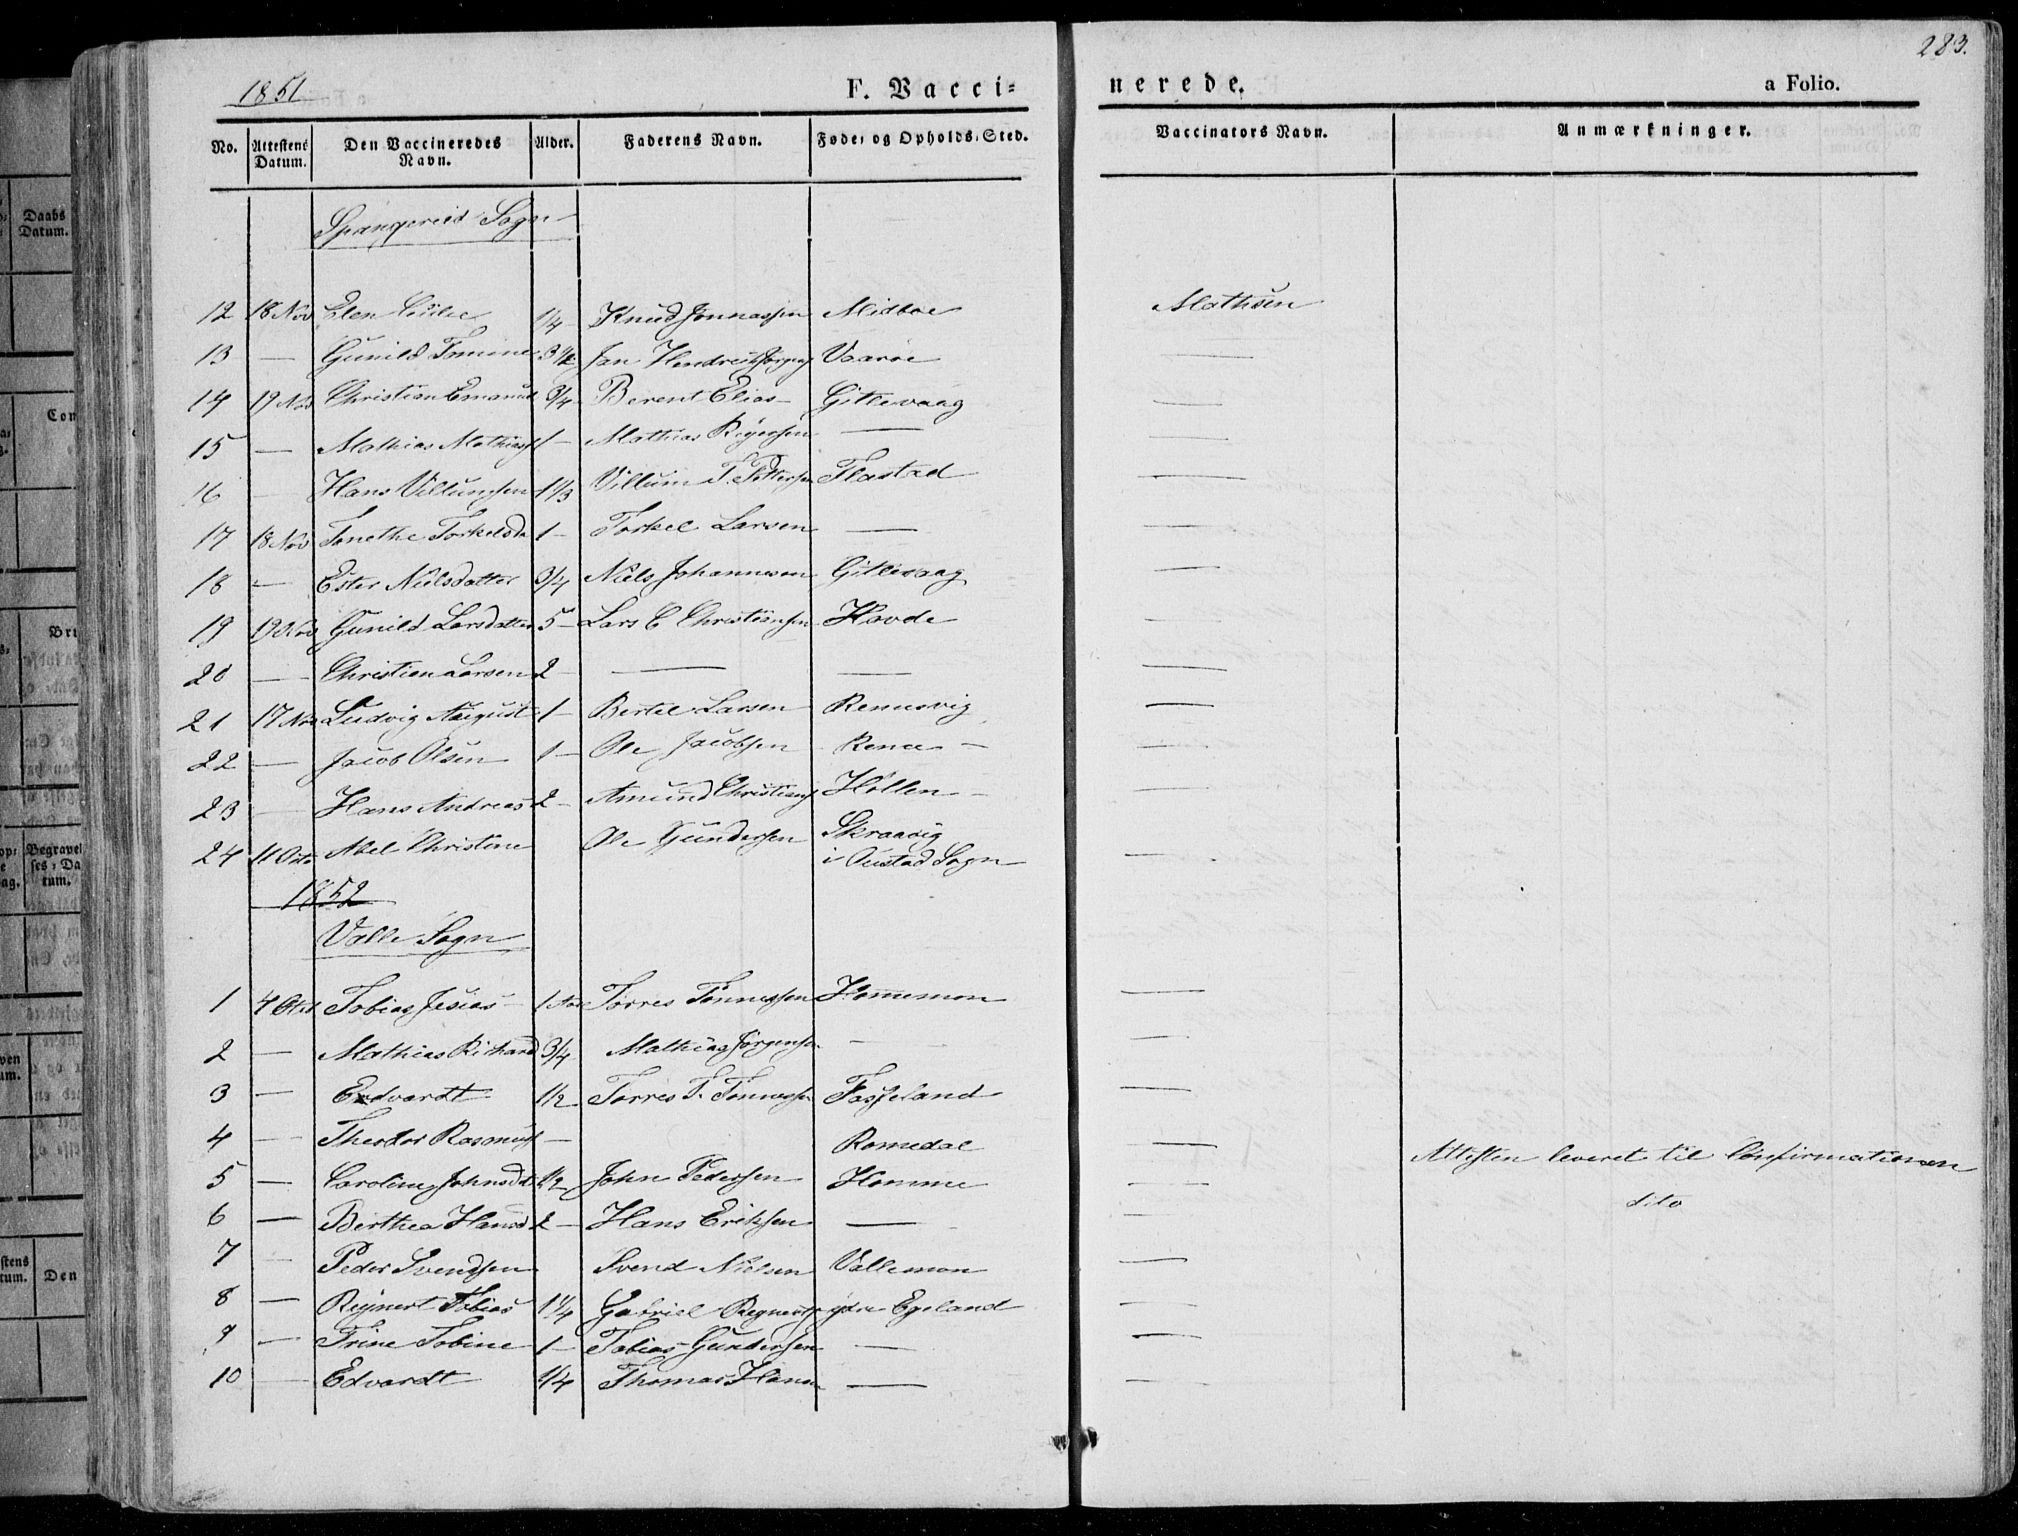 1851 F. Vacci=
nerede. a Folio. 283.
No. Attestens Datum. Den Vaccineredes Navn. Alder. Faderens Navn. Føde- og Opholds-Sted. Vaccinators Navn. Anmærkninger.
Spangereid Sogn
12 18 Nov Elen 1/4 Knud Jonnassen Midboe Mathsen
13 — Gunild Jan Vaaroe —
14 19 Nov Christian Emanuel 3/4 Berent Elias Gitlevaag —
15 — Mathias 1 — Mathias — —
16 — Hans Villumsen 1 1/3 Villum T. Pettersen —
17 18 Nov Tonethe Torkelsda 1 — Torkel Larsen — —
18 — Ester Nielsdatter 3/4 Niels Johannesen Gitlevaag —
19 19 Nov Gunild Larsdatter 5 — Lars C Christiansen Hovde —
20 — Christian Larsen 2 — — — —
21 17 Nov Ludvig August 1 — Bertel Larsen Rennesvig —
22 — Jacob Olsen 1 — Ole Jacobsen —
23 — Hans Andreas 2 — Amund Christians Høllen —
24 11 Octo Abel Christine Ole Gundersen Skraavig
i Oustad Sogn —
1852
Valle Sogn
1 4 Octob Tobias Jesias 1 Torres Tønnessen Hommemon —
2 — Mathias Richard 3/4 Mathias Jørgensen — —
3 — Edvardt 1/2 Torres T. Tønnessen Fasseland —
4 — Theodor Rasmus — Romedal —
5 — Caroline Johnsdt 1/2 John Pedersen Homme — Attesten leveret til Confirmationen
6 — Berthea Hansd 2 — Hans Eriksen — — dito
7 — Peder Svendsen Svend Nielsen Vallemon —
8 — Regnert Tobias 1 1/4 Gabriel Regnerts ydre Egeland —
9 — Trine Tobine 1 — Tobias Gundersen — —
10 — Edvardt 1/4 Thomas Hans — —
Daabs
Datum.
Begravel
ses-Da
tum.
Den